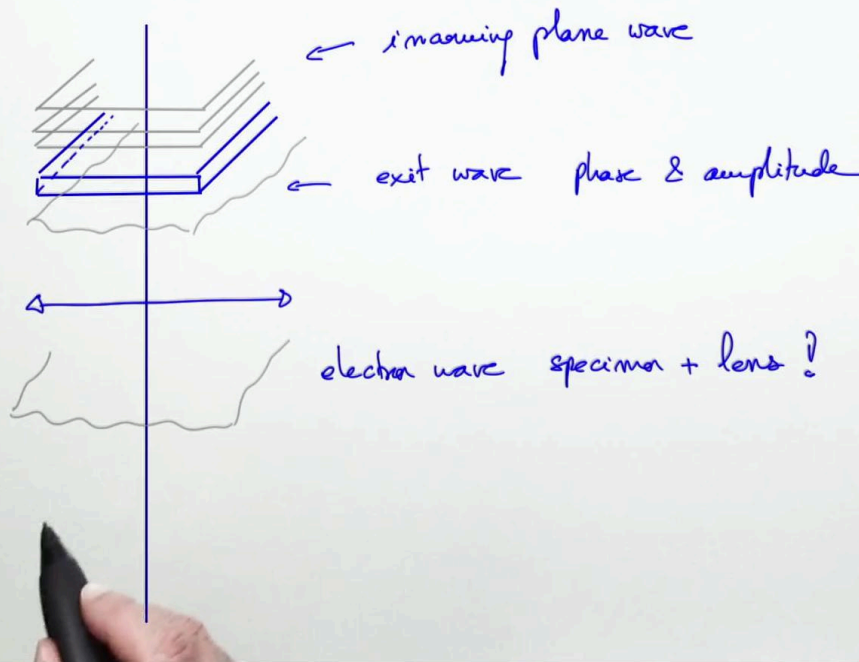 incoming plane wave
exit wave phase & amplitude
electron wave specimen + lens !